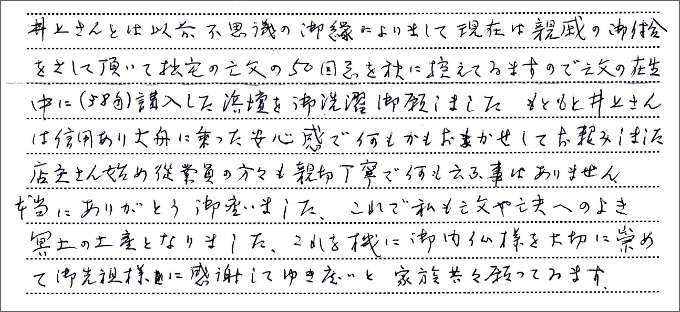 井上さんとは以前不思議の御縁によりまして現在は親戚の御付合
をさして頂いて拙宅の亡父の50回忌を秋に控えてゐますので亡父の在生
中に(58年)購入した浜壇を御洗濯御願しました もともと井上さん
は信用あり大舟に乗った安心感で何もかもおまかせしてお頼みしました
店主さん始め従業員の方々も親切丁寧で何も云ふ事はありません
本当にありがとう御座いました、これで私も亡父や亡夫へのよき
冥土の土産となりました、これを機に御内仏様を大切に崇め
て御先祖様に感謝してゆき度いと 家族共々願ってゐます。